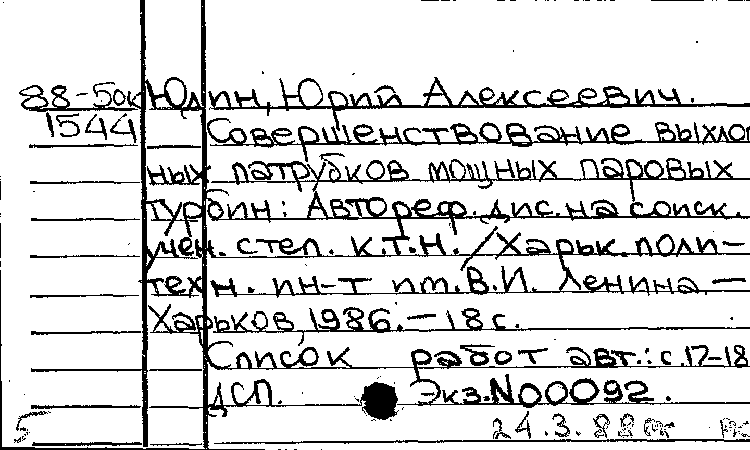 88-5ок Юдин, Юрий Алексеевич.
1544 Совершенствование выхлоп
ных патрубков мощных паровых
турбин: Автореф. дис. на соиск.
учен. степ. к.т.н. / Харьк. поли-
техн. ин-т им. В.И. Ленина. —
Харьков, 1986. — 18 с.
Список работ авт.: с. 17-18
ДСП. Экз. N00092.
5 24.3.88